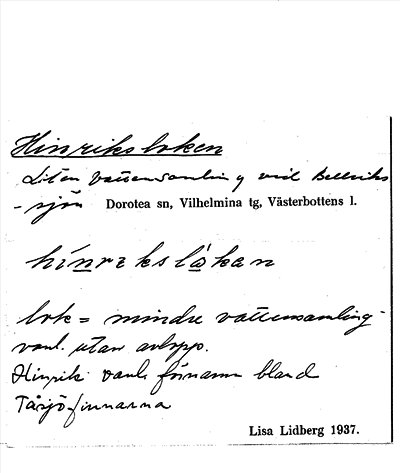 Hinriksloken
Liten vattensamling vid Bellviks
-sjön Dorotea sn, Vilhelmina tg, Västerbottens l.
hinrikslåkan
lok = mindre vattensamling
vanl. utan avlopp.
Hinrik vanl. förnamn bland
Tåsjöfinnarna
Lisa Lidberg 1937.